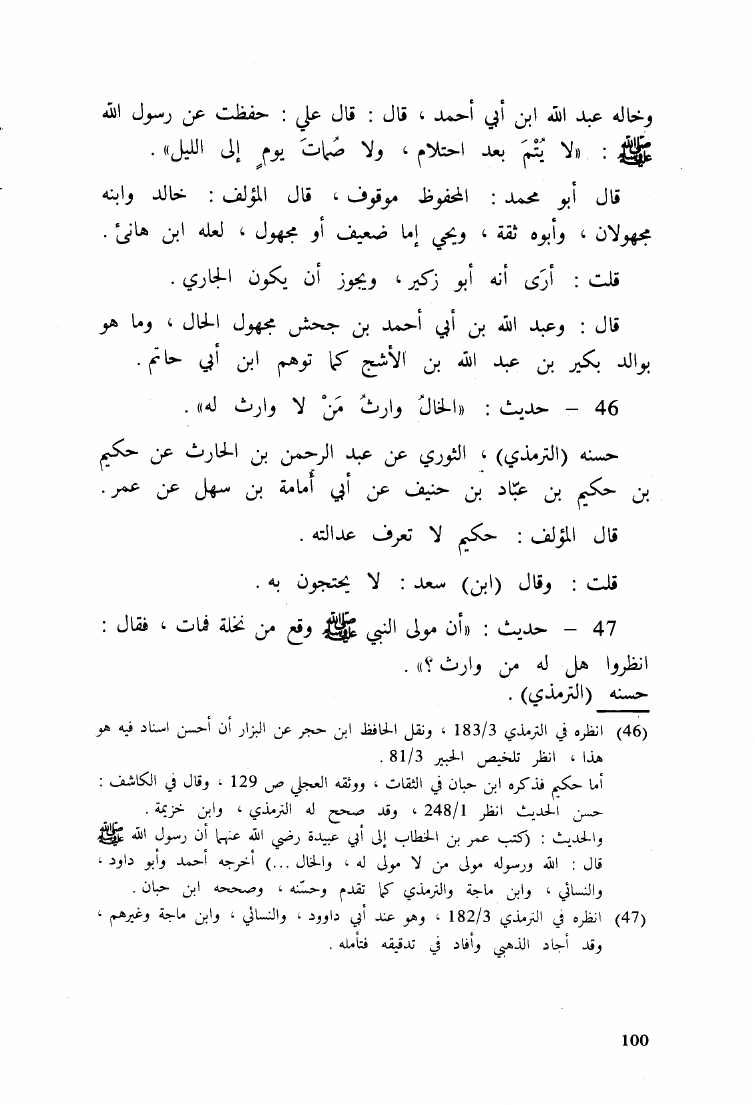 وخاله عبد الله ابن أبي أحمد ، قال : قال علي : حفظت عن رسول الله
ﷺ : «لا يُتْمَ بعد احتلام ، ولا صُمَاتَ يومٍ إلى الليل» .
قال أبو محمد : المحفوظ موقوف ، قال المؤلف : خالد وابنه
مجهولان ، وأبوه ثقة ، ويحي إما ضعيف أو مجهول ، لعله ابن هانئ .
قلت : أرَى أنه أبو زكير ، ويجوز أن يكون الجاري .
قال : وعبد الله بن أبي أحمد بن جحش مجهول الحال ، وما هو
بوالد بكير بن عبد الله بن الأشج كما توهم ابن أبي حاتم .
46 – حديث : «الخَالُ وارثُ مَنْ لا وارث له» .
حسنه (الترمذي) ، الثوري عن عبد الرحمن بن الحارث عن حكيم
بن حكيم بن عبّاد بن حنيف عن أبي أُمامة بن سهل عن عمر .
قال المؤلف : حكيم لا تعرف عدالته .
قلت : وقال (ابن) سعد : لا يحتجون به .
47 – حديث : «أن مولى النبي ﷺ وقع من نخلة فمات ، فقال :
انظروا هل له من وارث ؟» .
حسنه (الترمذي) .
(46) انظره في الترمذي 183/3 ، ونقل الحافظ ابن حجر عن البزار أن أحسن اسناد فيه هو
هذا ، انظر تلخيص الحبير 81/3 .
أما حكيم فذكره ابن حبان في الثقات ، ووثقه العجلي ص 129 ، وقال في الكاشف :
حسن الحديث انظر 248/1 ، وقد صحح له الترمذي ، وابن خزيمة .
والحديث : (كتب عمر بن الخطاب إلى أبي عبيدة رضي الله عنهما أن رسول الله ﷺ
قال : الله ورسوله مولى من لا مولى له ، والخال ...) أخرجه أحمد وأبو داود ،
والنسائي ، وابن ماجة والترمذي كما تقدم وحسّنه ، وصححه ابن حبان .
(47) انظره في الترمذي 182/3 ، وهو عند أبي داوود ، والنسائي ، وابن ماجة وغيرهم ،
وقد أجاد الذهبي وأفاد في تدقيقه فتأمله .
100